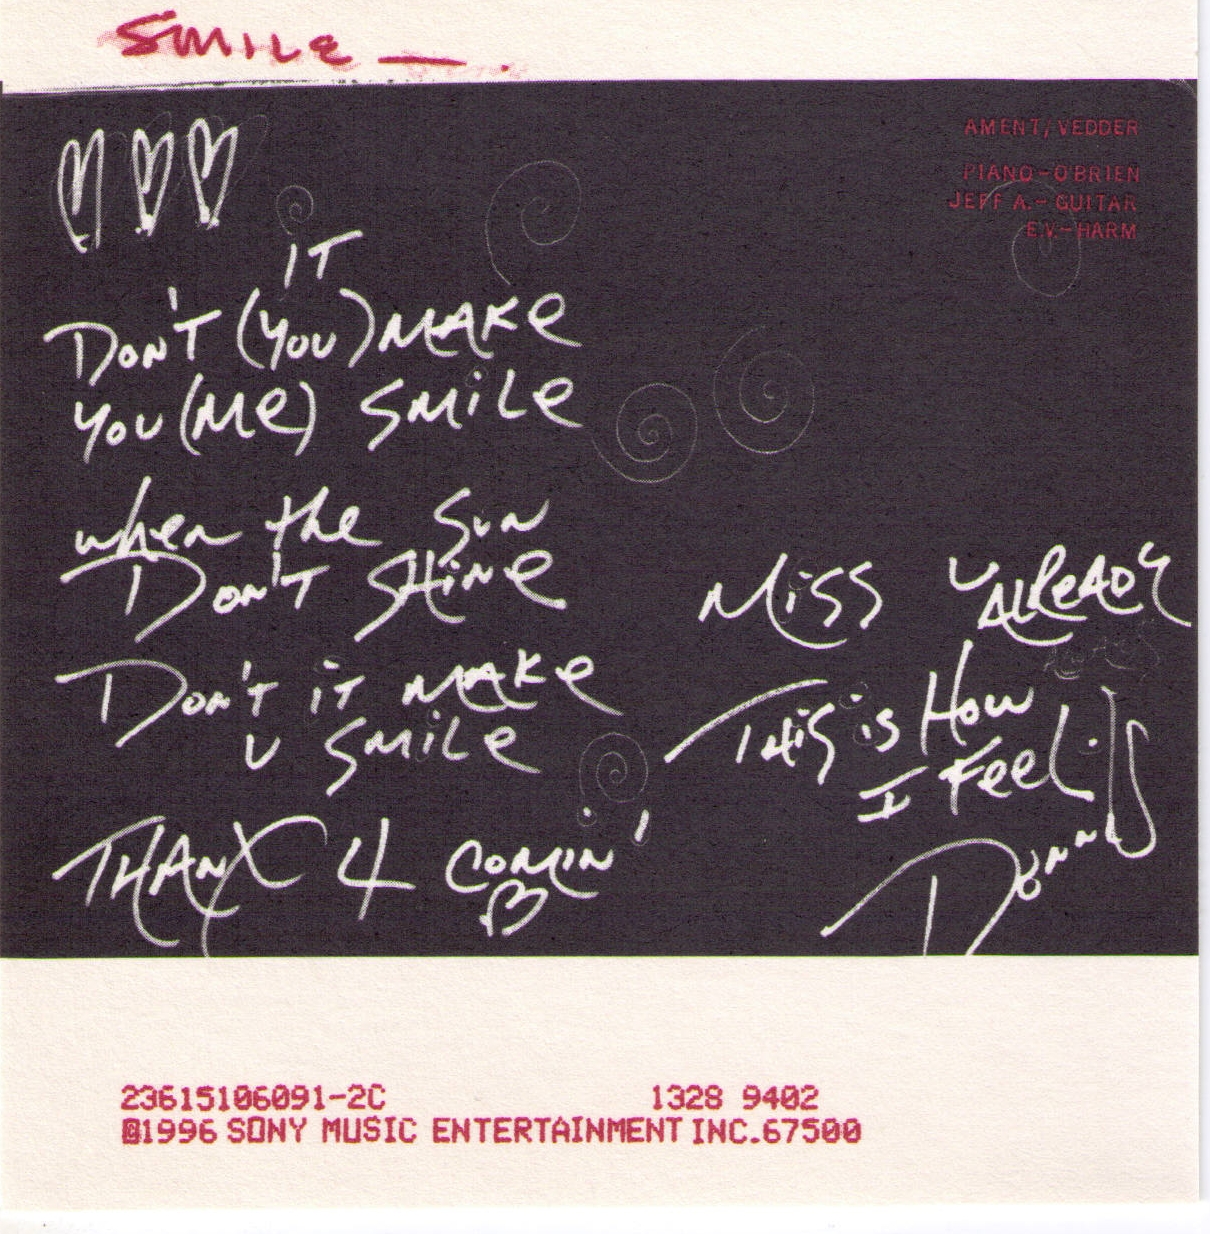 SMILE — .
AMENT, VEDDER
PIANO-O'BRIEN
JEFF A.- GUITAR
E.V.-HARM
IT
DON'T (YOU) MAKE
YOU (ME) SMILE
when the SUN
DON'T SHINE
DON'T iT MAKE
U SMiLE
THANX 4 COMIN'
MiSS U ALREADY
THiS is How
I FeeL
DENNIS
23615106091-2C 1328 9402
©1996 SONY MUSIC ENTERTAINMENT INC.67500